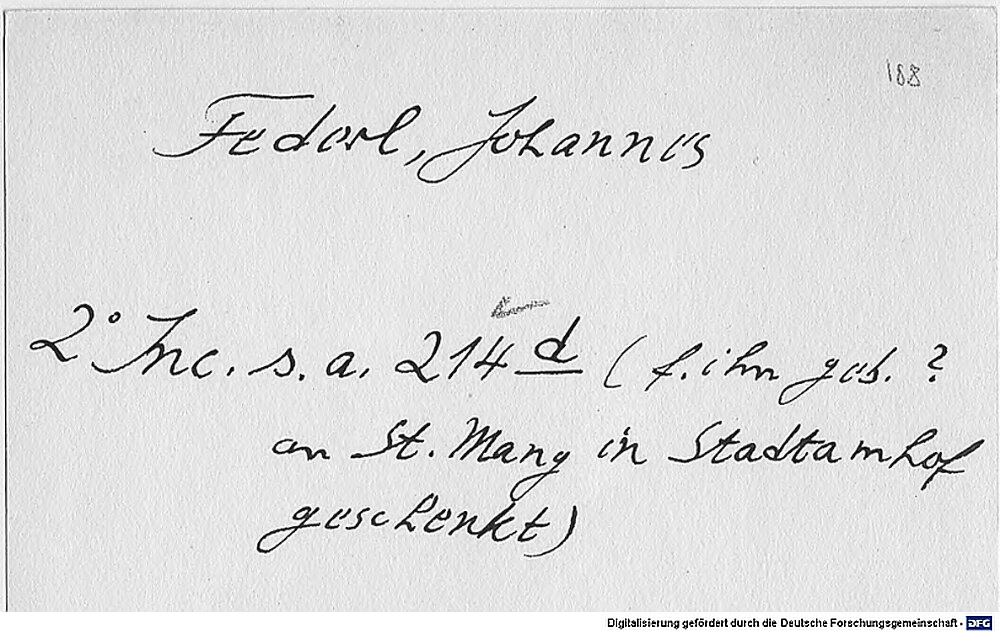 188
Federl, Johannes
2° Inc. s. a. 214 d (f. ihn geb. ?
an St. Mang in Stadtamhof
geschenkt)
Digitalisierung gefördert durch die Deutsche Forschungsgemeinschaft - DFG